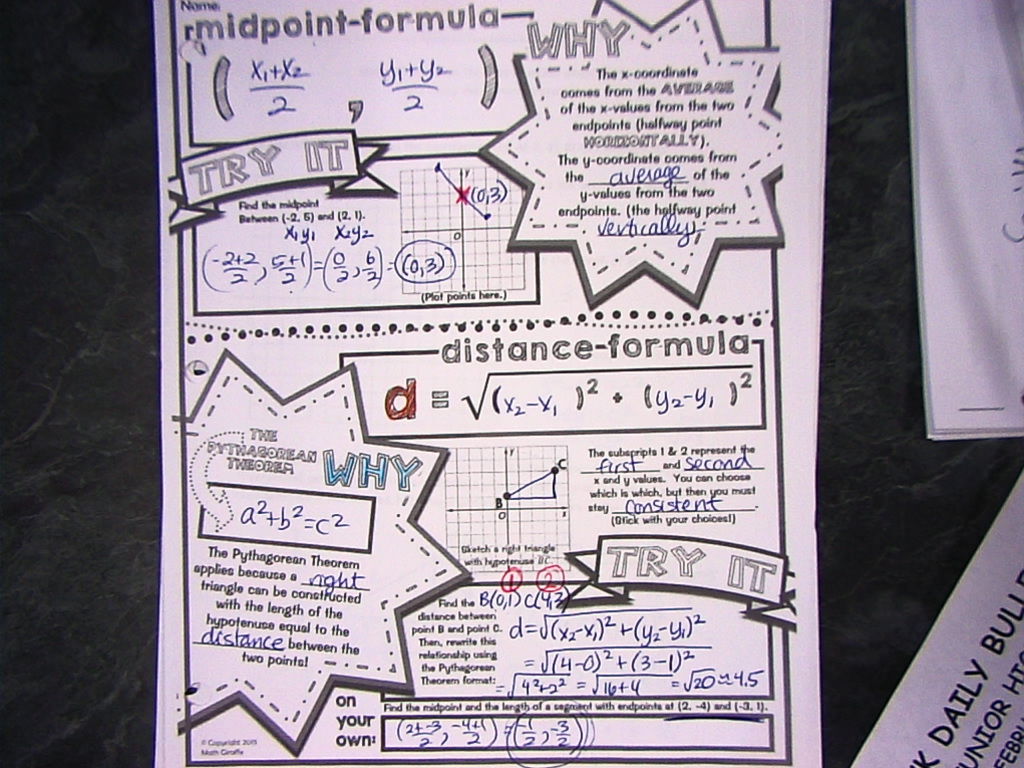 Name:
midpoint-formula
( x₁+x₂/2 , y₁+y₂/2 )
WHY
The x-coordinate
comes from the AVERAGE
of the x-values from the two
endpoints (halfway point
HORIZONTALLY).
The y-coordinate comes from
the average of the
y-values from the two
endpoints. (the halfway point
vertically)
TRY IT
Find the midpoint
Between (-2, 5) and (2, 1).
x₁ y₁ x₂ y₂
(-2+2/2, 5+1/2) = (0/2, 6/2) = (0,3)
y
(0,3)
O
(Plot points here.)
distance-formula
d = √(x₂-x₁)² + (y₂-y₁)²
THE
PYTHAGOREAN
THEOREM
WHY
a²+b²=c²
The Pythagorean Theorem
applies because a right
triangle can be constructed
with the length of the
hypotenuse equal to the
distance between the
two points!
y
C
B
O
x
Sketch a right triangle
with hypotenuse BC.
The subscripts 1 & 2 represent the
first and second
x and y values. You can choose
which is which, but then you must
stay consistent
(Stick with your choices!)
TRY IT
1 2
Find the B(0,1) C(4,3)
distance between
point B and point C.
Then, rewrite this
relationship using
the Pythagorean
Theorem format:
d=√(x₂-x₁)²+(y₂-y₁)²
=√(4-0)²+(3-1)²
=√4²+2² =√16+4 =√20≈4.5
on
your
own:
Find the midpoint and the length of a segment with endpoints at (2, -4) and (-3, 1).
(2+-3/2, -4+1/2) = (-1/2, -3/2)
© Copyright 2015
Math Giraffe
K DAILY BULL
UNIOR HIG
FEBR